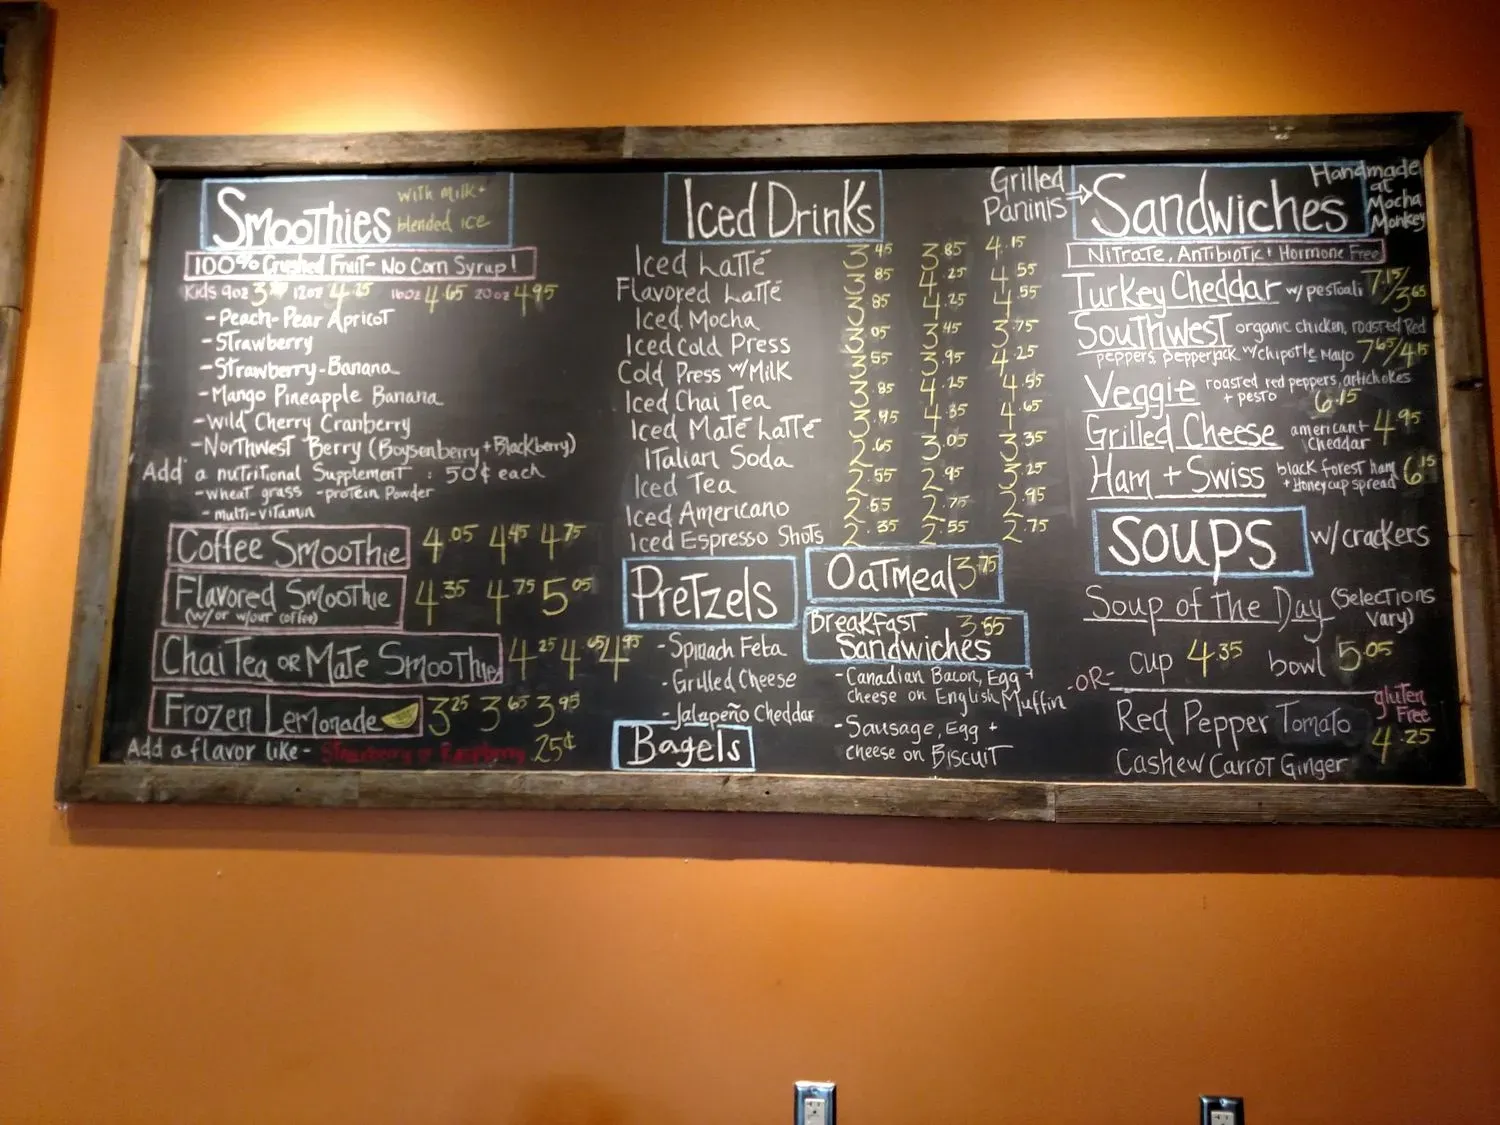 Smoothies with milk + blended ice
100% Crushed Fruit - No Corn Syrup!
Kids 9oz 12oz 4.25 16oz 4.65 20oz 4.95
- Peach-Pear Apricot
- Strawberry
- Strawberry-Banana
- Mango Pineapple Banana
- Wild Cherry Cranberry
- Northwest Berry (Boysenberry + Blackberry)
Add a nutritional Supplement : 50¢ each
- wheat grass - protein Powder
- multi-vitamin
Coffee Smoothie 4.05 4.45 4.75
Flavored Smoothie 4.35 4.75 5.05
(w/ or w/out coffee)
Chai Tea or Mate Smoothie 4.25 4.65 4.95
Frozen Lemonade 3.25 3.65 3.95
Add a flavor like - Strawberry or Raspberry .25¢
Iced Drinks
Iced Latté 3.45 3.85 4.15
Flavored Latté 3.85 4.25 4.55
Iced Mocha 3.85 4.25 4.55
Iced Cold Press 3.05 3.45 3.75
Cold Press w/Milk 3.55 3.95 4.25
Iced Chai Tea 3.85 4.25 4.55
Iced Maté Latté 3.95 4.35 4.65
Italian Soda 2.65 3.05 3.35
Iced Tea 2.55 2.95 3.25
Iced Americano 2.55 2.75 2.95
Iced Espresso Shots 2.35 2.55 2.75
Pretzels
- Spinach Feta
- Grilled Cheese
- Jalapeño Cheddar
Bagels
Oatmeal 3.75
Breakfast 3.55
Sandwiches
- Canadian Bacon, Egg +
cheese on English Muffin
- Sausage, Egg +
cheese on Biscuit
Grilled
Paninis
Sandwiches
Handmade
at
Mocha
Monkey
Nitrate, Antibiotic + Hormone Free
Turkey Cheddar w/ pestoali 7.15/3.65
Southwest organic chicken, roasted Red
peppers, pepperjack w/chipotle Mayo 7.65/4.15
Veggie roasted red peppers, artichokes
+ pesto 6.15
Grilled Cheese american + cheddar 4.95
Ham + Swiss black forest ham
+ Honeycup spread 6.15
Soups w/crackers
Soup of the Day (Selections
vary)
cup 4.35 bowl 5.05
-OR-
Red Pepper Tomato gluten Free
4.25
Cashew Carrot Ginger